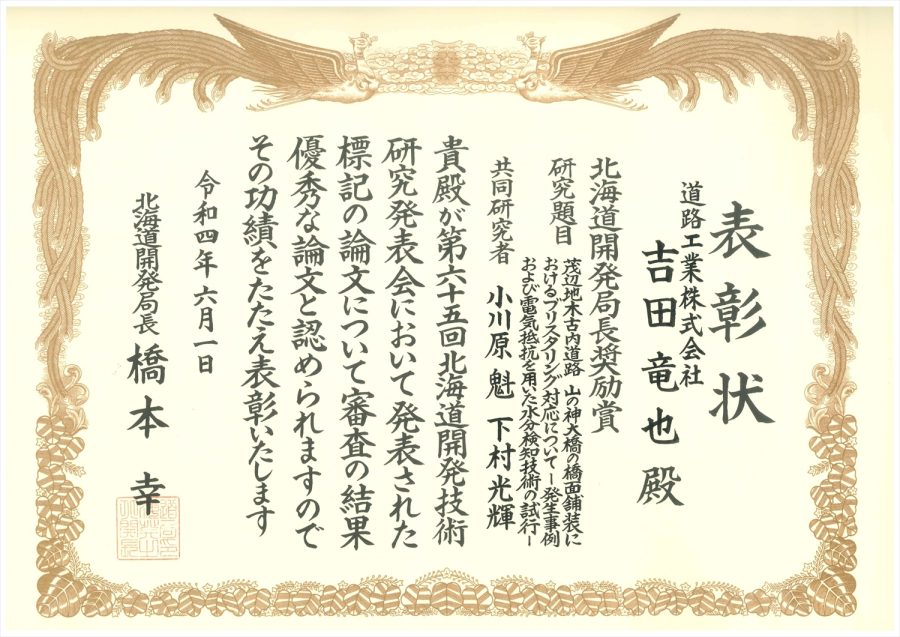 表彰状
道路工業株式会社
吉田竜也殿
北海道開発局長奨励賞
研究題目
茂辺地木古内道路 山の神大橋の橋面舗装に
おけるブリスタリング対応について－発生事例
および電気抵抗を用いた水分検知技術の試行－
共同研究者 小川原魁 下村光輝
貴殿が第六十五回北海道開発技術
研究発表会において発表された
標記の論文について審査の結果
優秀な論文と認められますので
その功績をたたえ表彰いたします
令和四年六月一日
北海道開発局長 橋本幸